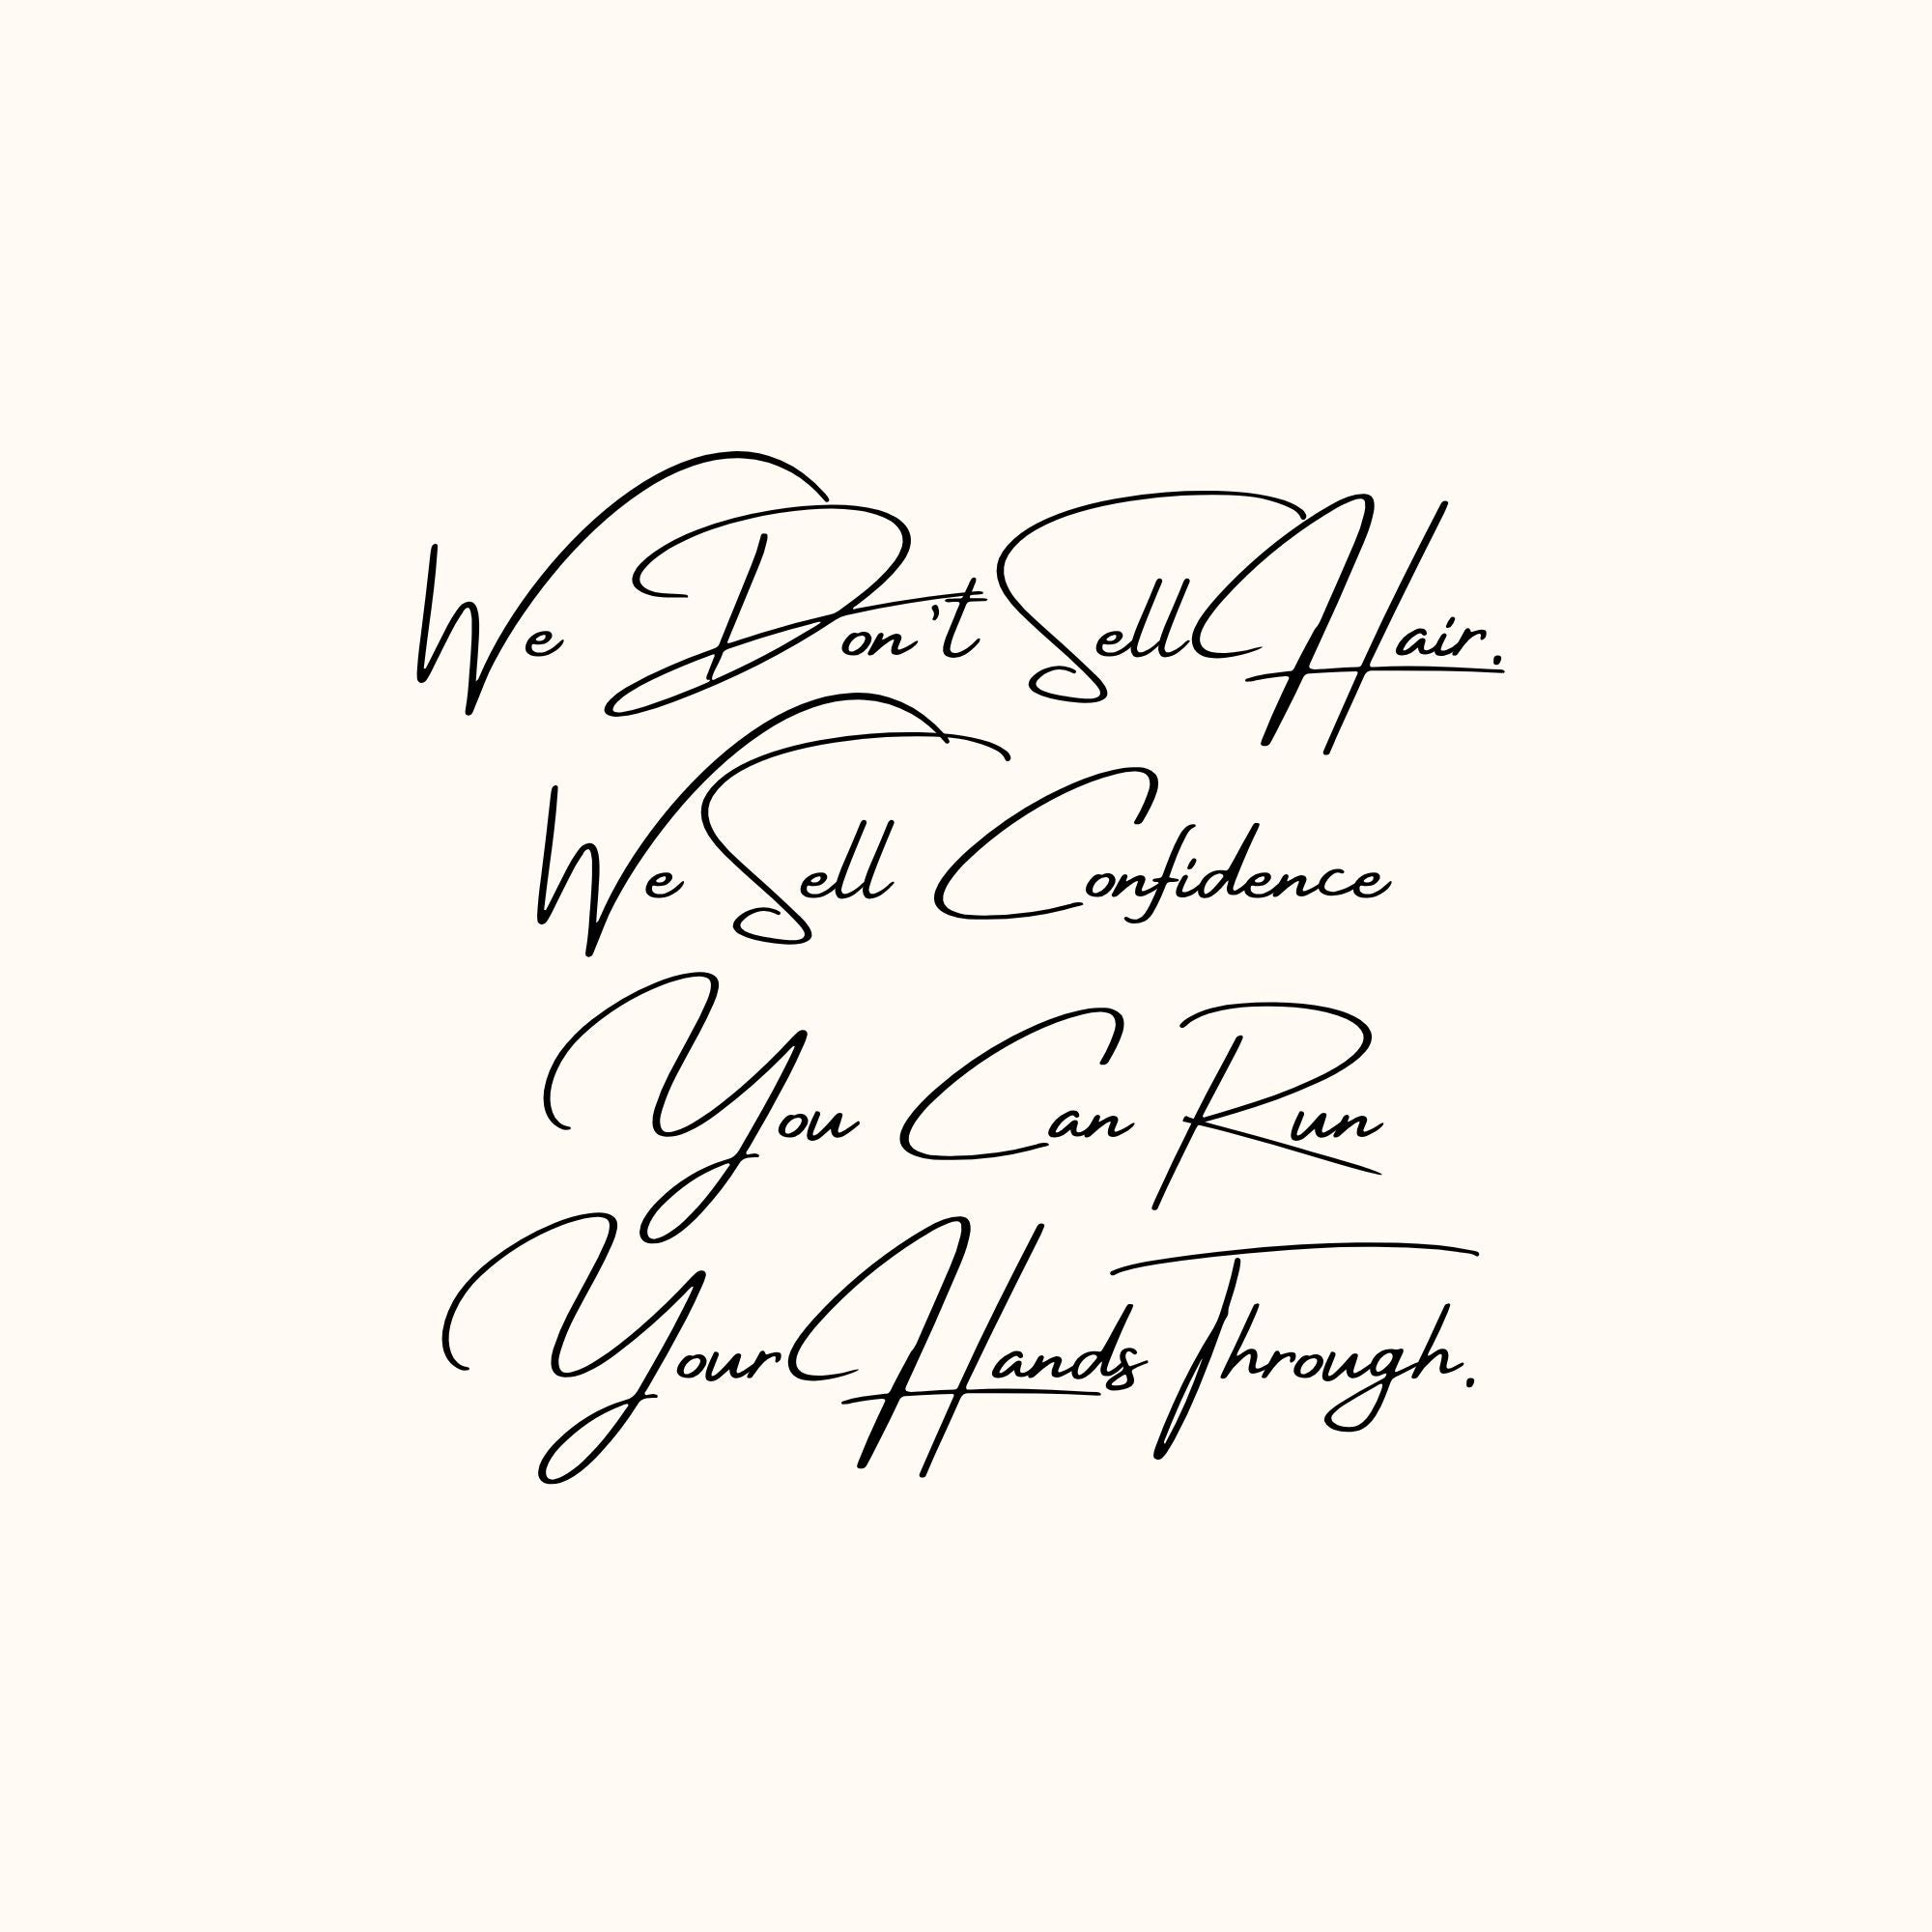 We Don't Sell Hair.
We Sell Confidence
You Can Run
Your Hands Through.